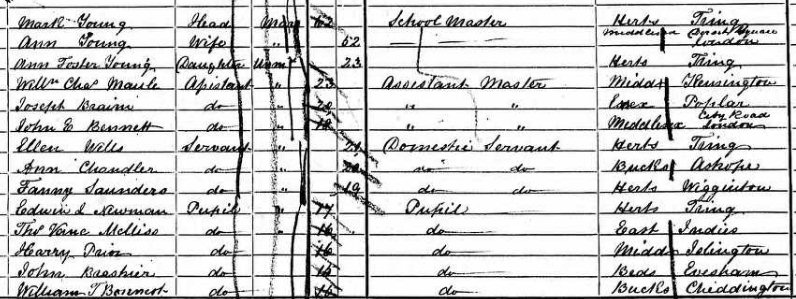 Mark Young Head Marr 62 School Master Herts Tring
Ann Young Wife " 52 Middlesex Square London
Ann Foster Young Daughter Unm 23 Herts Tring
Willm Chas Maule Assistant " 23 Assistant Master Midd Kensington
Joseph Braim do " 18 " " Essex Poplar
John E Bennett do " 18 " " Middlesex City Road London
Ellen Wells Servant " 21 Domestic Servant Herts Tring
Ann Chandler do " do do Bucks
Fanny Saunders do " 19 do do Herts Wigginton
Edwin I Newman Pupil " 17 Pupil Herts Tring
Thos Vane do 16 do East Indies
Harry Prior do 16 do Midd Islington
John do 15 do Beds Evesham
William T do 15 do Bucks Cheddington